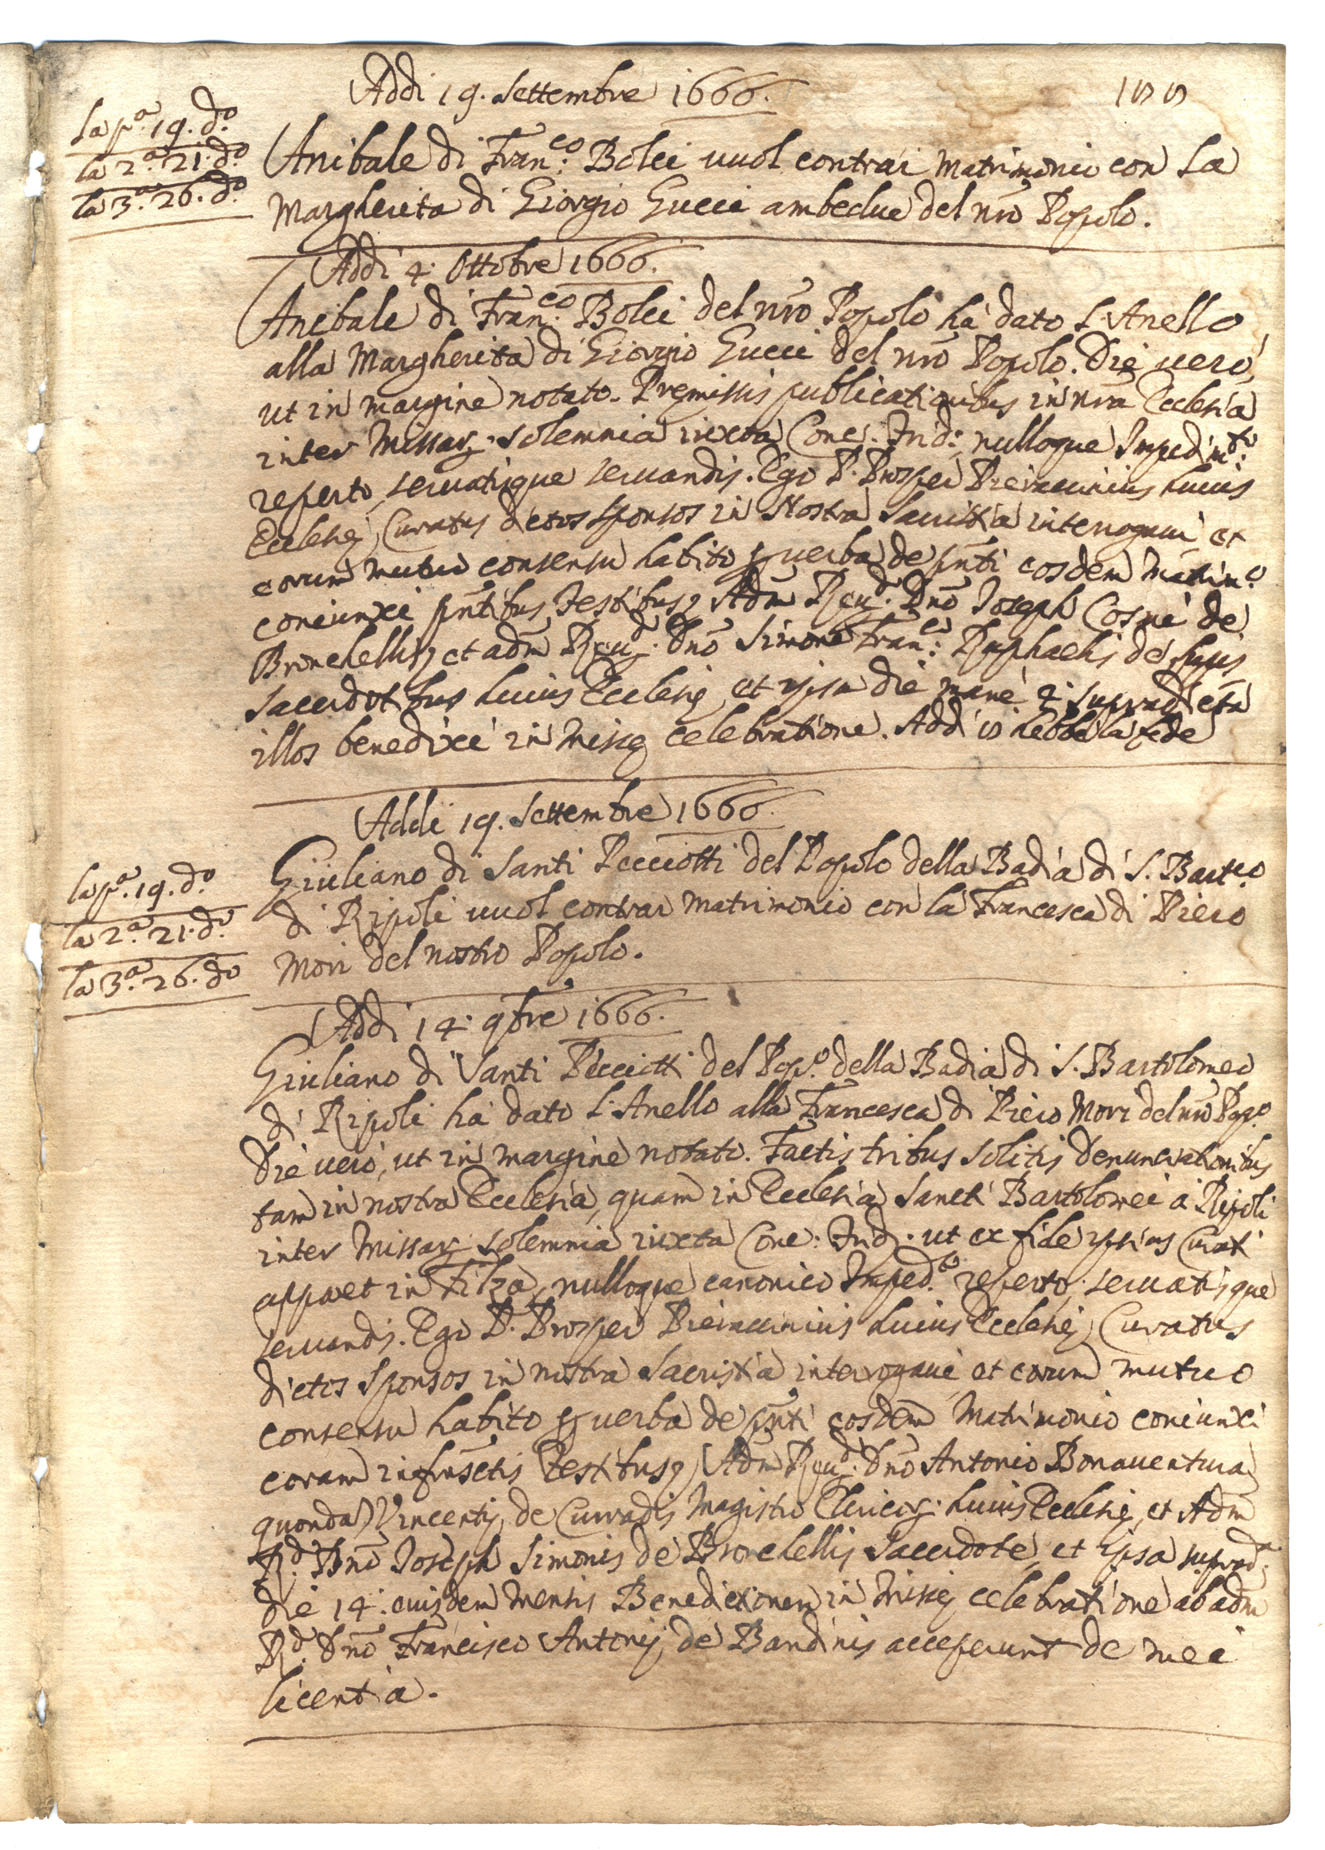 Addi 19. Settembre 1666.
la p.a 19. do.
la 2.a 21. do
la 3.a 26. do
Anibale di Fran.co Bolci vuol contrar Matrimonio con la
Margherita di Giorgio Gucci ambedue del nro Popolo.
Addi 4. Ottobre 1666.
Anibale di Fran.co Bolci del nro Popolo ha dato l'Anello
alla Margherita di Giorgio Gucci del nro Popolo. Die uero,
ut in margine notato. Premissis publicationibus in nra Ecclesia
inter Missarum solemnia iuxta Conc. Trid: nulloque Impedim.to
reperto, seruatisque seruandis. Ego P. Prosper huius
Ecclesię Curatus dictos sponsos in Nostra Sacristia interrogaui et
eorum mutuo consensu habito per uerba de pnti eosdem Matrim.o
coniunxi pntibus Testibus, Adm Reud. Dno Joseph de
Bronchellis, et adm Reud. Dno Simone Fran.ci Raphaelis de
Sacerdotibus huius Ecclesię, et ipsa die mane supradicta
illos benedixi in Missę celebratione. Addi hebbe la fede
Addi 19. Settembre 1666.
la p.a 19. do
la 2.a 21. do.
la 3.a 26. do
Giuliano di Santi Pecciotti del Popolo della Badia di S. Barteo.
di Ripoli vuol contrar Matrimonio con la Francesca di Piero
Mori del nostro Popolo.
Addi 14. 9bre 1666.
Giuliano di Santi Pecciotti del Pop.o della Badia di S. Bartolomeo
di Ripoli ha dato l'Anello alla Francesca di Piero Mori del nro Pop.o
Die uero, ut in margine notato. Factis tribus solitis denunciationibus
tam in nostra Ecclesia, quam in Ecclesia Sancti Bartolomei a Ripoli
inter Missarum solemnia iuxta Conc. Trid. ut ex fide ipsius Curati
apparet in Filza, nulloque canonico Imped.to reperto, seruatisque
seruandis. Ego P. Prosper huius Ecclesię Curatus
dictos sponsos in nostra Sacristia interrogaui, et eorum mutuo
consensu habito per uerba de pnti eosdem Matrimonio coniunxi
coram infrasctis Testibus, Adm Reud. Dno Antonio Bonauentura
quondam Vincentij de Curradis Magistro Clericorum huius Ecclesię, et Adm
R.d Dno Joseph Simonis de Bronchellis Sacerdote, et ipsa suprad.a
die 14. eiusdem mensis Benedictionem in Missę celebratione ab adm
R.d Dno Francisco Antonij de Bandinis acceperunt de mei
licentia.